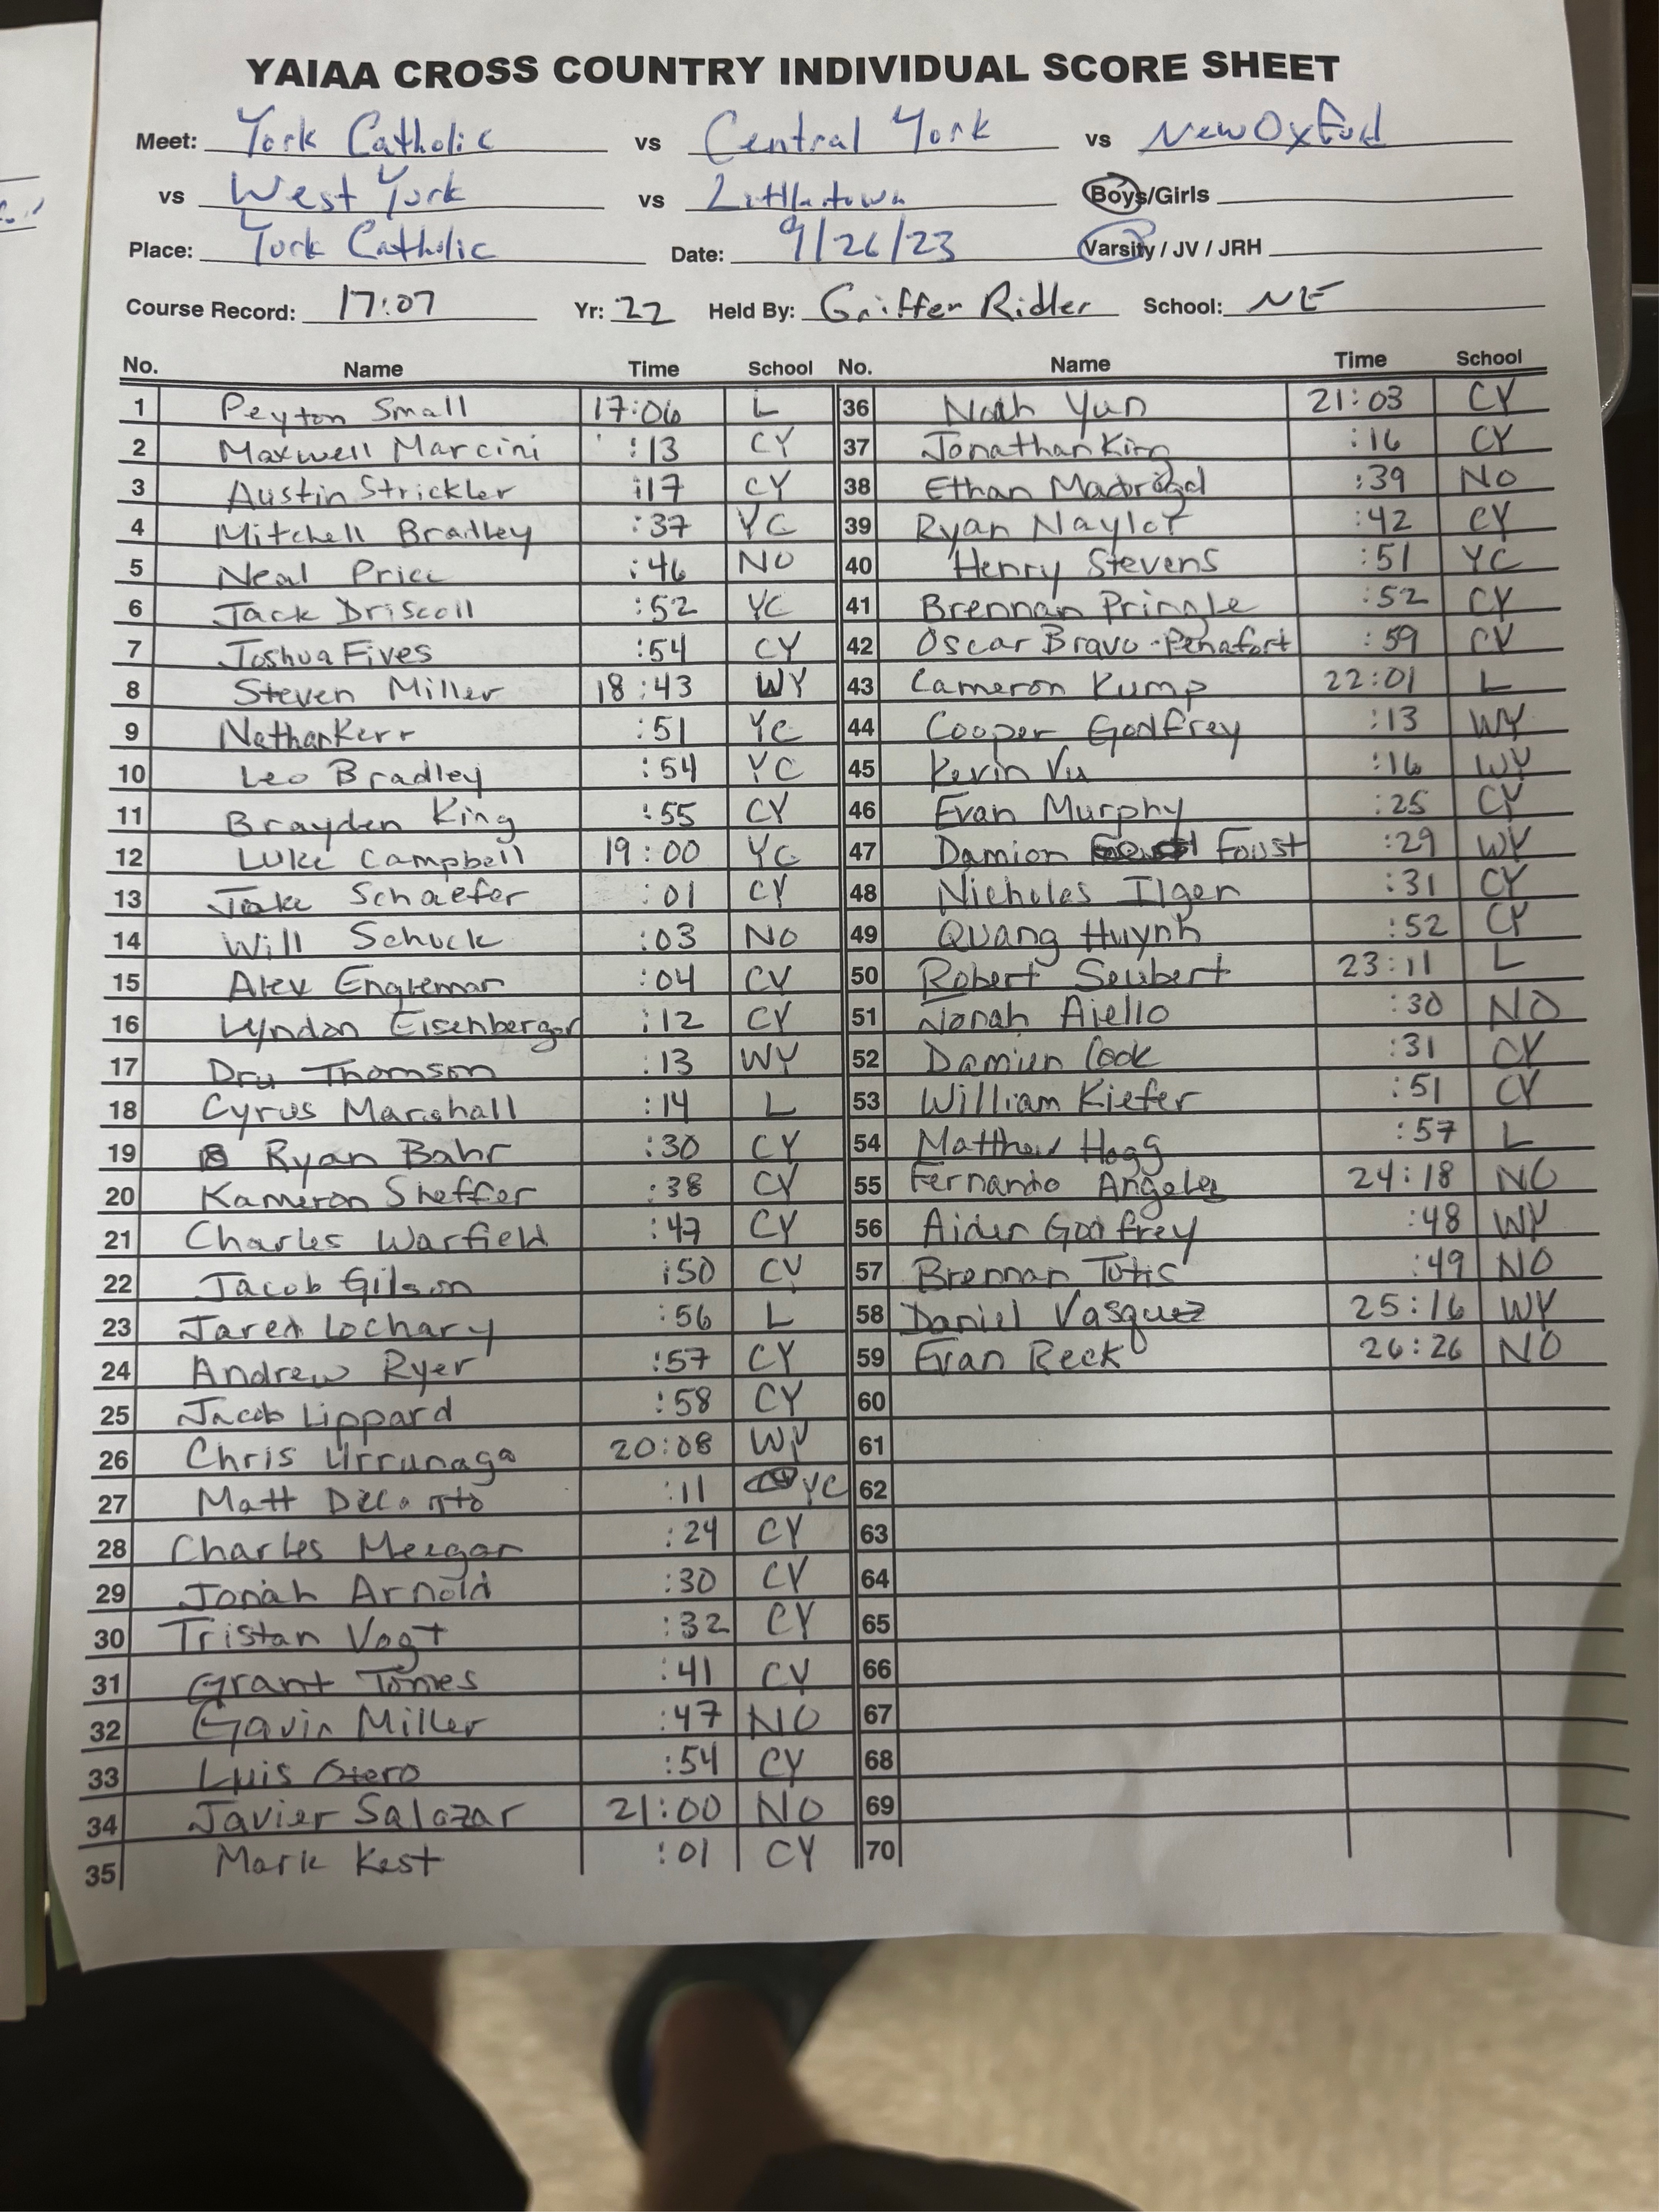 YAIAA CROSS COUNTRY INDIVIDUAL SCORE SHEET
Meet: York Catholic vs Central York vs New Oxford
vs West York vs Littlestown Boys/Girls
Place: York Catholic Date: 9/26/23 Varsity / JV / JRH
Course Record: 17:07 Yr: 22 Held By: Griffen Ridler School: NE
No. Name Time School No. Name Time School
1 Peyton Small 17:06 L 36 Noah Yun 21:03 CY
2 Maxwell Marcini :13 CY 37 Jonathan King :16 CY
3 Austin Strickler :17 CY 38 Ethan :39 NO
4 Mitchell Bradley :37 YC 39 Ryan Naylor :42 CY
5 Neal Price :46 NO 40 Henry Stevens :51 YC
6 Jack Driscoll :52 YC 41 Brennan Pringle :52 CY
7 Joshua Fives :54 CY 42 Oscar Bravo-Penafort :59 CY
8 Steven Miller 18:43 WY 43 Cameron Kump 22:01 L
9 Nathan Kerr :51 YC 44 Cooper Godfrey :13 WY
10 Leo Bradley :54 YC 45 Kevin Vu :16 WY
11 Brayden King :55 CY 46 Evan Murphy :25 CY
12 Luke Campbell 19:00 YC 47 Damion Foust :29 WY
13 Jake Schaefer :01 CY 48 Nicholas Ilger :31 CY
14 Will Schuck :03 NO 49 Quang Huynh :52 CY
15 Alex Engleman :04 CY 50 Robert Seubert 23:11 L
16 Lyndon Eisenberger :12 CY 51 Nonah Aiello :30 NO
17 Dru Thomson :13 WY 52 Damien Cook :31 CY
18 Cyrus Marshall :14 L 53 William Kiefer :51 CY
19 Ryan Bahr :30 CY 54 Matthew Hogg :57 L
20 Kameron Sheffer :38 CY 55 Fernando Angeles 24:18 NO
21 Charles Warfield :47 CY 56 Aiden Godfrey :48 WY
22 Jacob Gilson :50 CY 57 Brennan :49 NO
23 Jared Lochary :56 L 58 Daniel Vasquez 25:16 WY
24 Andrew Ryer :57 CY 59 Evan Reck 26:26 NO
25 Jacob Lippard :58 CY 60
26 Chris Urrunaga 20:08 WY 61
27 Matt :11 YC 62
28 Charles :24 CY 63
29 Jonah Arnold :30 CY 64
30 Tristan Vogt :32 CY 65
31 Grant Tomes :41 CY 66
32 Gavin Miller :47 NO 67
33 Luis Otero :54 CY 68
34 Javier Salazar 21:00 NO 69
35 Mark Kest :01 CY 70